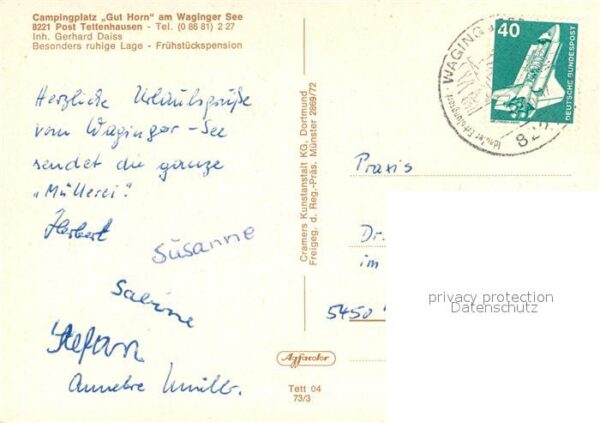 Campingplatz „Gut Horn" am Waginger See
8221 Post Tettenhausen - Tel. (0 86 81) 2 27
Inh. Gerhard Daiss
Besonders ruhige Lage - Frühstückspension
Herzliche Urlaubsgrüße
vom Waginger-See
sendet die ganze
„Müllerei".
Herbert
Susanne
Sabine
Stefan
Cramers Kunstanstalt KG, Dortmund
Freigeg. d. Reg.-Präs. Münster 2869/72
Agfacolor
Tett 04
73/3
WAGING
40
DEUTSCHE BUNDESPOST
Praxis
Dr.
im
5450
privacy protection
Datenschutz